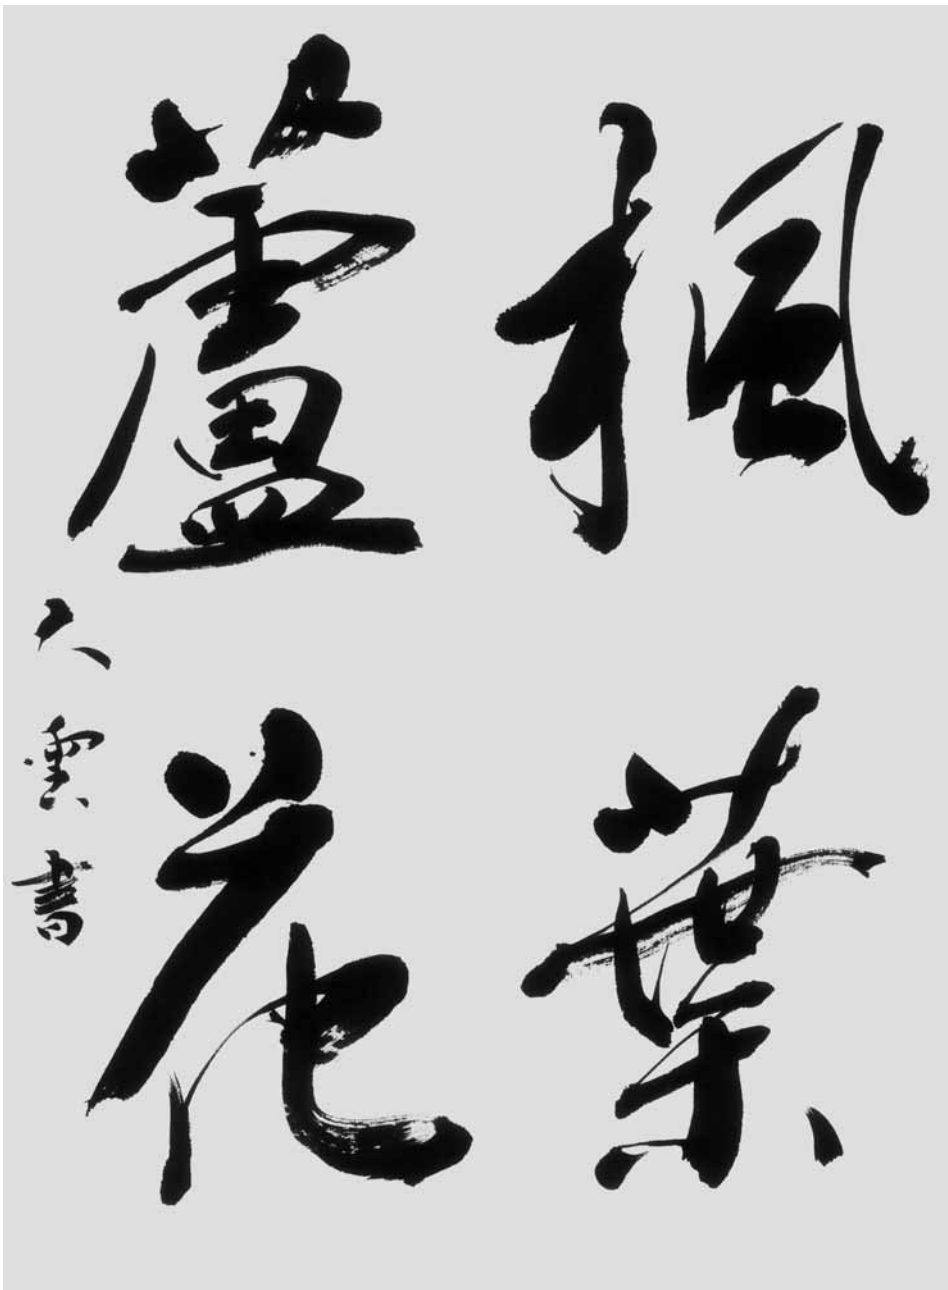 楓葉
蘆花
久雲書